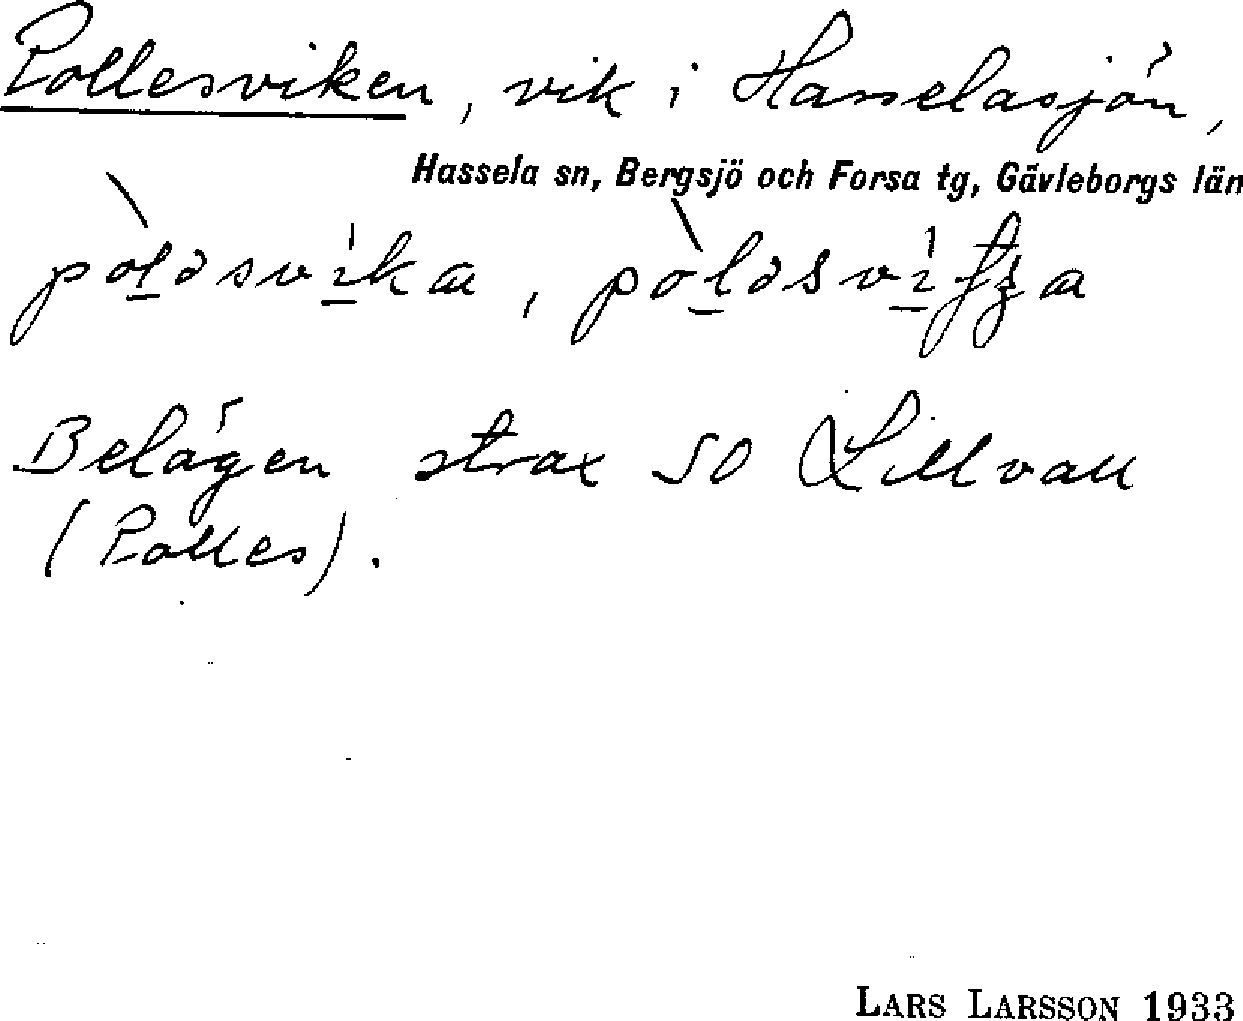 Pollesviken, vik i Hasselasjön,
Hassela sn, Bergsjö och Forsa tg, Gävleborgs län
Belägen strax SO Lillvall
(Polles).
LARS LARSSON 1933